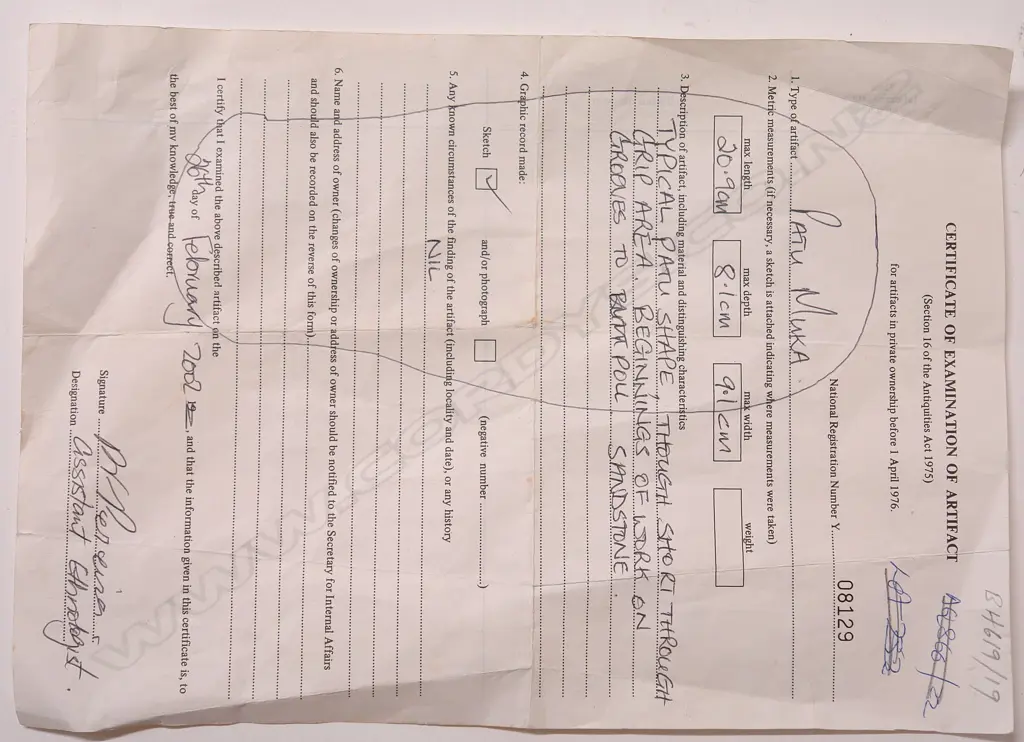 BH619/19
CERTIFICATE OF EXAMINATION OF ARTIFACT
(Section 16 of the Antiquities Act 1975)
for artifacts in private ownership before 1 April 1976.
National Registration Number Y 08129
1. Type of artifact PATU MUKA
2. Metric measurements (if necessary, a sketch is attached indicating where measurements were taken)
max length max depth max width weight
20.9cm 8.1cm 9.1cm
3. Description of artifact, including material and distinguishing characteristics
TYPICAL PATU SHAPE, THOUGH SHORT THROUGH
GRIP AREA. BEGINNINGS OF WORK ON
GROOVES TO BUTT POLL SANDSTONE.
4. Graphic record made:
Sketch ✓ and/or photograph (negative number )
5. Any known circumstances of the finding of the artifact (including locality and date), or any history
NIL
6. Name and address of owner (changes of ownership or address of owner should be notified to the Secretary for Internal Affairs
and should also be recorded on the reverse of this form)
I certify that I examined the above described artifact on the
26th day of February 2002 19 , and that the information given in this certificate is, to
the best of my knowledge, true and correct.
Signature
Designation assistant Ethnologist.